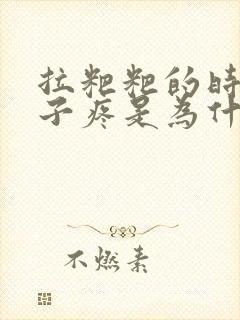 拉粑粑的時
子疼是為什
不燃素